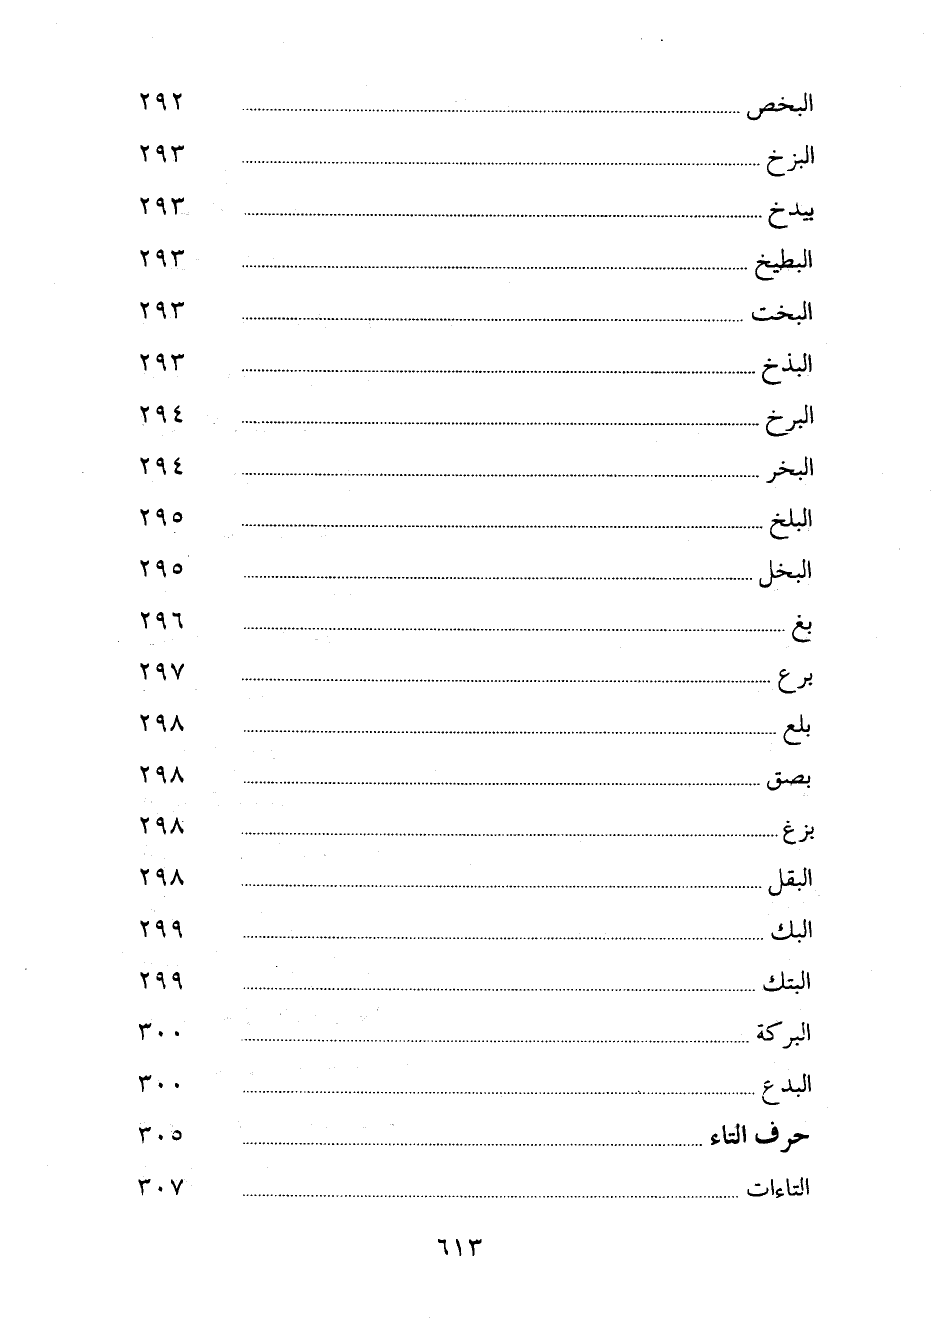 البخص ٢٩٢
البزخ ٢٩٣
بيدخ ٢٩٣
البطيخ ٢٩٣
البخت ٢٩٣
البذخ ٢٩٣
البرخ ٢٩٤
البخر ٢٩٤
البلخ ٢٩٥
البخل ٢٩٥
بغ ٢٩٦
برع ٢٩٧
بلع ٢٩٨
بصق ٢٩٨
بزغ ٢٩٨
البقل ٢٩٨
البك ٢٩٩
البتك ٢٩٩
البركة ٣٠٠
البدع ٣٠٠
حرف التاء ٣٠٥
التاءات ٣٠٧
٦١٣